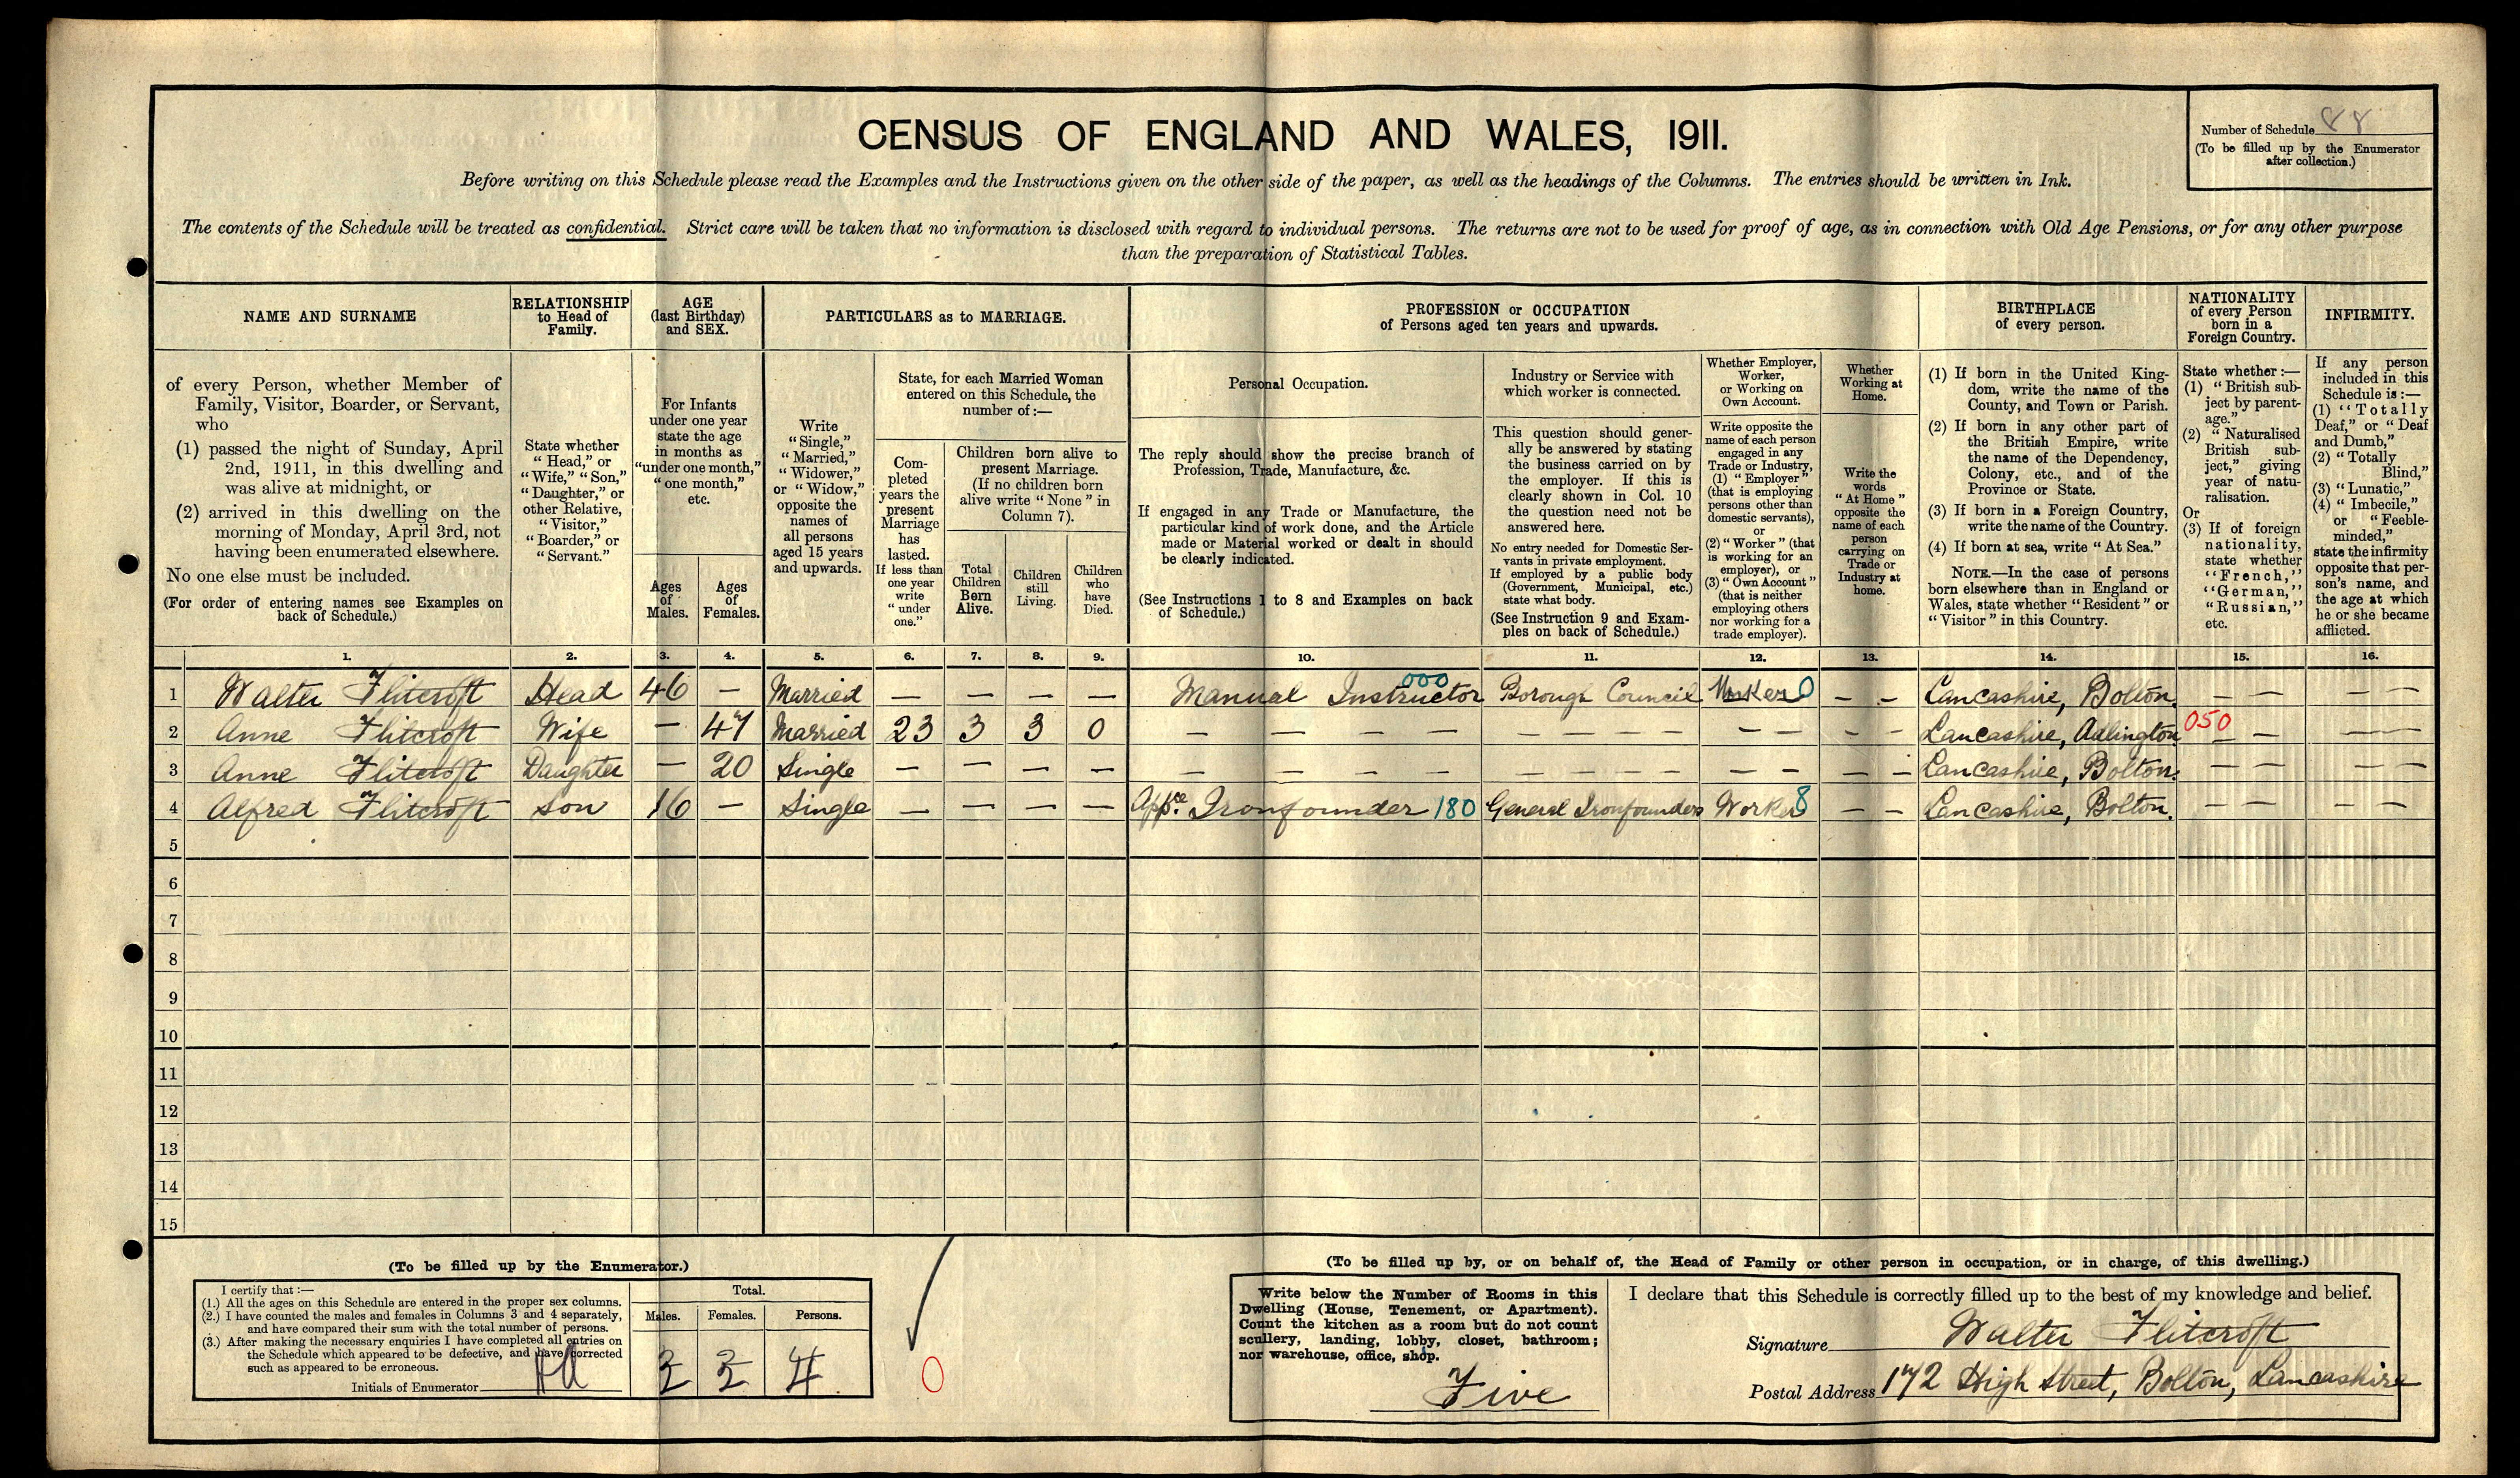 CENSUS OF ENGLAND AND WALES, 1911.
Number of Schedule 88
(To be filled up by the Enumerator
after collection.)
Before writing on this Schedule please read the Examples and the Instructions given on the other side of the paper, as well as the headings of the Columns. The entries should be written in Ink.
The contents of the Schedule will be treated as confidential. Strict care will be taken that no information is disclosed with regard to individual persons. The returns are not to be used for proof of age, as in connection with Old Age Pensions, or for any other purpose
than the preparation of Statistical Tables.
NAME AND SURNAME
of every Person, whether Member of
Family, Visitor, Boarder, or Servant,
who
(1) passed the night of Sunday, April
2nd, 1911, in this dwelling and
was alive at midnight, or
(2) arrived in this dwelling on the
morning of Monday, April 3rd, not
having been enumerated elsewhere.
No one else must be included.
(For order of entering names see Examples on
back of Schedule.)
RELATIONSHIP
to Head of
Family.
State whether
"Head," or
"Wife," "Son,"
"Daughter," or
other Relative,
"Visitor,"
"Boarder," or
"Servant."
AGE
(last Birthday)
and SEX.
For Infants
under one year
state the age
in months as
"under one month,"
"one month,"
etc.
Ages
of
Males.
Ages
of
Females.
PARTICULARS as to MARRIAGE.
Write
"Single,"
"Married,"
"Widower,"
or "Widow,"
opposite the
names of
all persons
aged 15 years
and upwards.
State, for each Married Woman
entered on this Schedule, the
number of:—
Com-
pleted
years the
present
Marriage
has
lasted.
If less than
one year
write
"under
one."
Children born alive to
present Marriage.
(If no children born
alive write "None" in
Column 7).
Total
Children
Born
Alive.
Children
still
Living.
Children
who
have
Died.
PROFESSION or OCCUPATION
of Persons aged ten years and upwards.
Personal Occupation.
The reply should show the precise branch of
Profession, Trade, Manufacture, &c.
If engaged in any Trade or Manufacture, the
particular kind of work done, and the Article
made or Material worked or dealt in should
be clearly indicated.
(See Instructions 1 to 8 and Examples on back
of Schedule.)
Industry or Service with
which worker is connected.
This question should gener-
ally be answered by stating
the business carried on by
the employer. If this is
clearly shown in Col. 10
the question need not be
answered here.
No entry needed for Domestic Ser-
vants in private employment.
If employed by a public body
(Government, Municipal, etc.)
state what body.
(See Instruction 9 and Exam-
ples on back of Schedule.)
Whether Employer,
Worker,
or Working on
Own Account.
Write opposite the
name of each person
engaged in any
Trade or Industry,
(1) "Employer"
(that is employing
persons other than
domestic servants),
or
(2) "Worker" (that
is working for an
employer), or
(3) "Own Account"
(that is neither
employing others
nor working for a
trade employer).
Whether
Working at
Home.
Write the
words
"At Home"
opposite the
name of each
person
carrying on
Trade or
Industry at
home.
BIRTHPLACE
of every person.
(1) If born in the United King-
dom, write the name of the
County, and Town or Parish.
(2) If born in any other part of
the British Empire, write
the name of the Dependency,
Colony, etc., and of the
Province or State.
(3) If born in a Foreign Country,
write the name of the Country.
(4) If born at sea, write "At Sea."
NOTE.—In the case of persons
born elsewhere than in England or
Wales, state whether "Resident" or
"Visitor" in this Country.
NATIONALITY
of every Person
born in a
Foreign Country.
State whether:—
(1) "British sub-
ject by parent-
age."
(2) "Naturalised
British sub-
ject," giving
year of natu-
ralisation.
Or
(3) If of foreign
nationality,
state whether
"French,"
"German,"
"Russian,"
etc.
INFIRMITY.
If any person
included in this
Schedule is:—
(1) "Totally
Deaf," or "Deaf
and Dumb,"
(2) "Totally
Blind,"
(3) "Lunatic,"
(4) "Imbecile,"
or "Feeble-
minded,"
state the infirmity
opposite that per-
son's name, and
the age at which
he or she became
afflicted.
1. 2. 3. 4. 5. 6. 7. 8. 9. 10. 11. 12. 13. 14. 15. 16.
1 Walter Flitcroft Head 46 — Married — — — — Manual Instructor 000 Borough Council Worker 0 — — Lancashire, Bolton. — — — —
2 Anne Flitcroft Wife — 47 Married 23 3 3 0 — — — — — — — — — — — — — Lancashire, Adlington 050 — — — —
3 Anne Flitcroft Daughter — 20 Single — — — — — — — — — — — — — — — — — Lancashire, Bolton. — — — —
4 Alfred Flitcroft Son 16 — Single — — — — Appce Ironfounder 180 General Ironfounders Worker 8 — — Lancashire, Bolton. — — — —
5
6
7
8
9
10
11
12
13
14
15
(To be filled up by the Enumerator.)
I certify that:—
(1.) All the ages on this Schedule are entered in the proper sex columns.
(2.) I have counted the males and females in Columns 3 and 4 separately,
and have compared their sum with the total number of persons.
(3.) After making the necessary enquiries I have completed all entries on
the Schedule which appeared to be defective, and have corrected
such as appeared to be erroneous.
Initials of Enumerator
Total.
Males. Females. Persons.
2 2 4
0
(To be filled up by, or on behalf of, the Head of Family or other person in occupation, or in charge, of this dwelling.)
Write below the Number of Rooms in this
Dwelling (House, Tenement, or Apartment).
Count the kitchen as a room but do not count
scullery, landing, lobby, closet, bathroom;
nor warehouse, office, shop.
Five
I declare that this Schedule is correctly filled up to the best of my knowledge and belief.
Signature Walter Flitcroft
Postal Address 172 High Street, Bolton, Lancashire